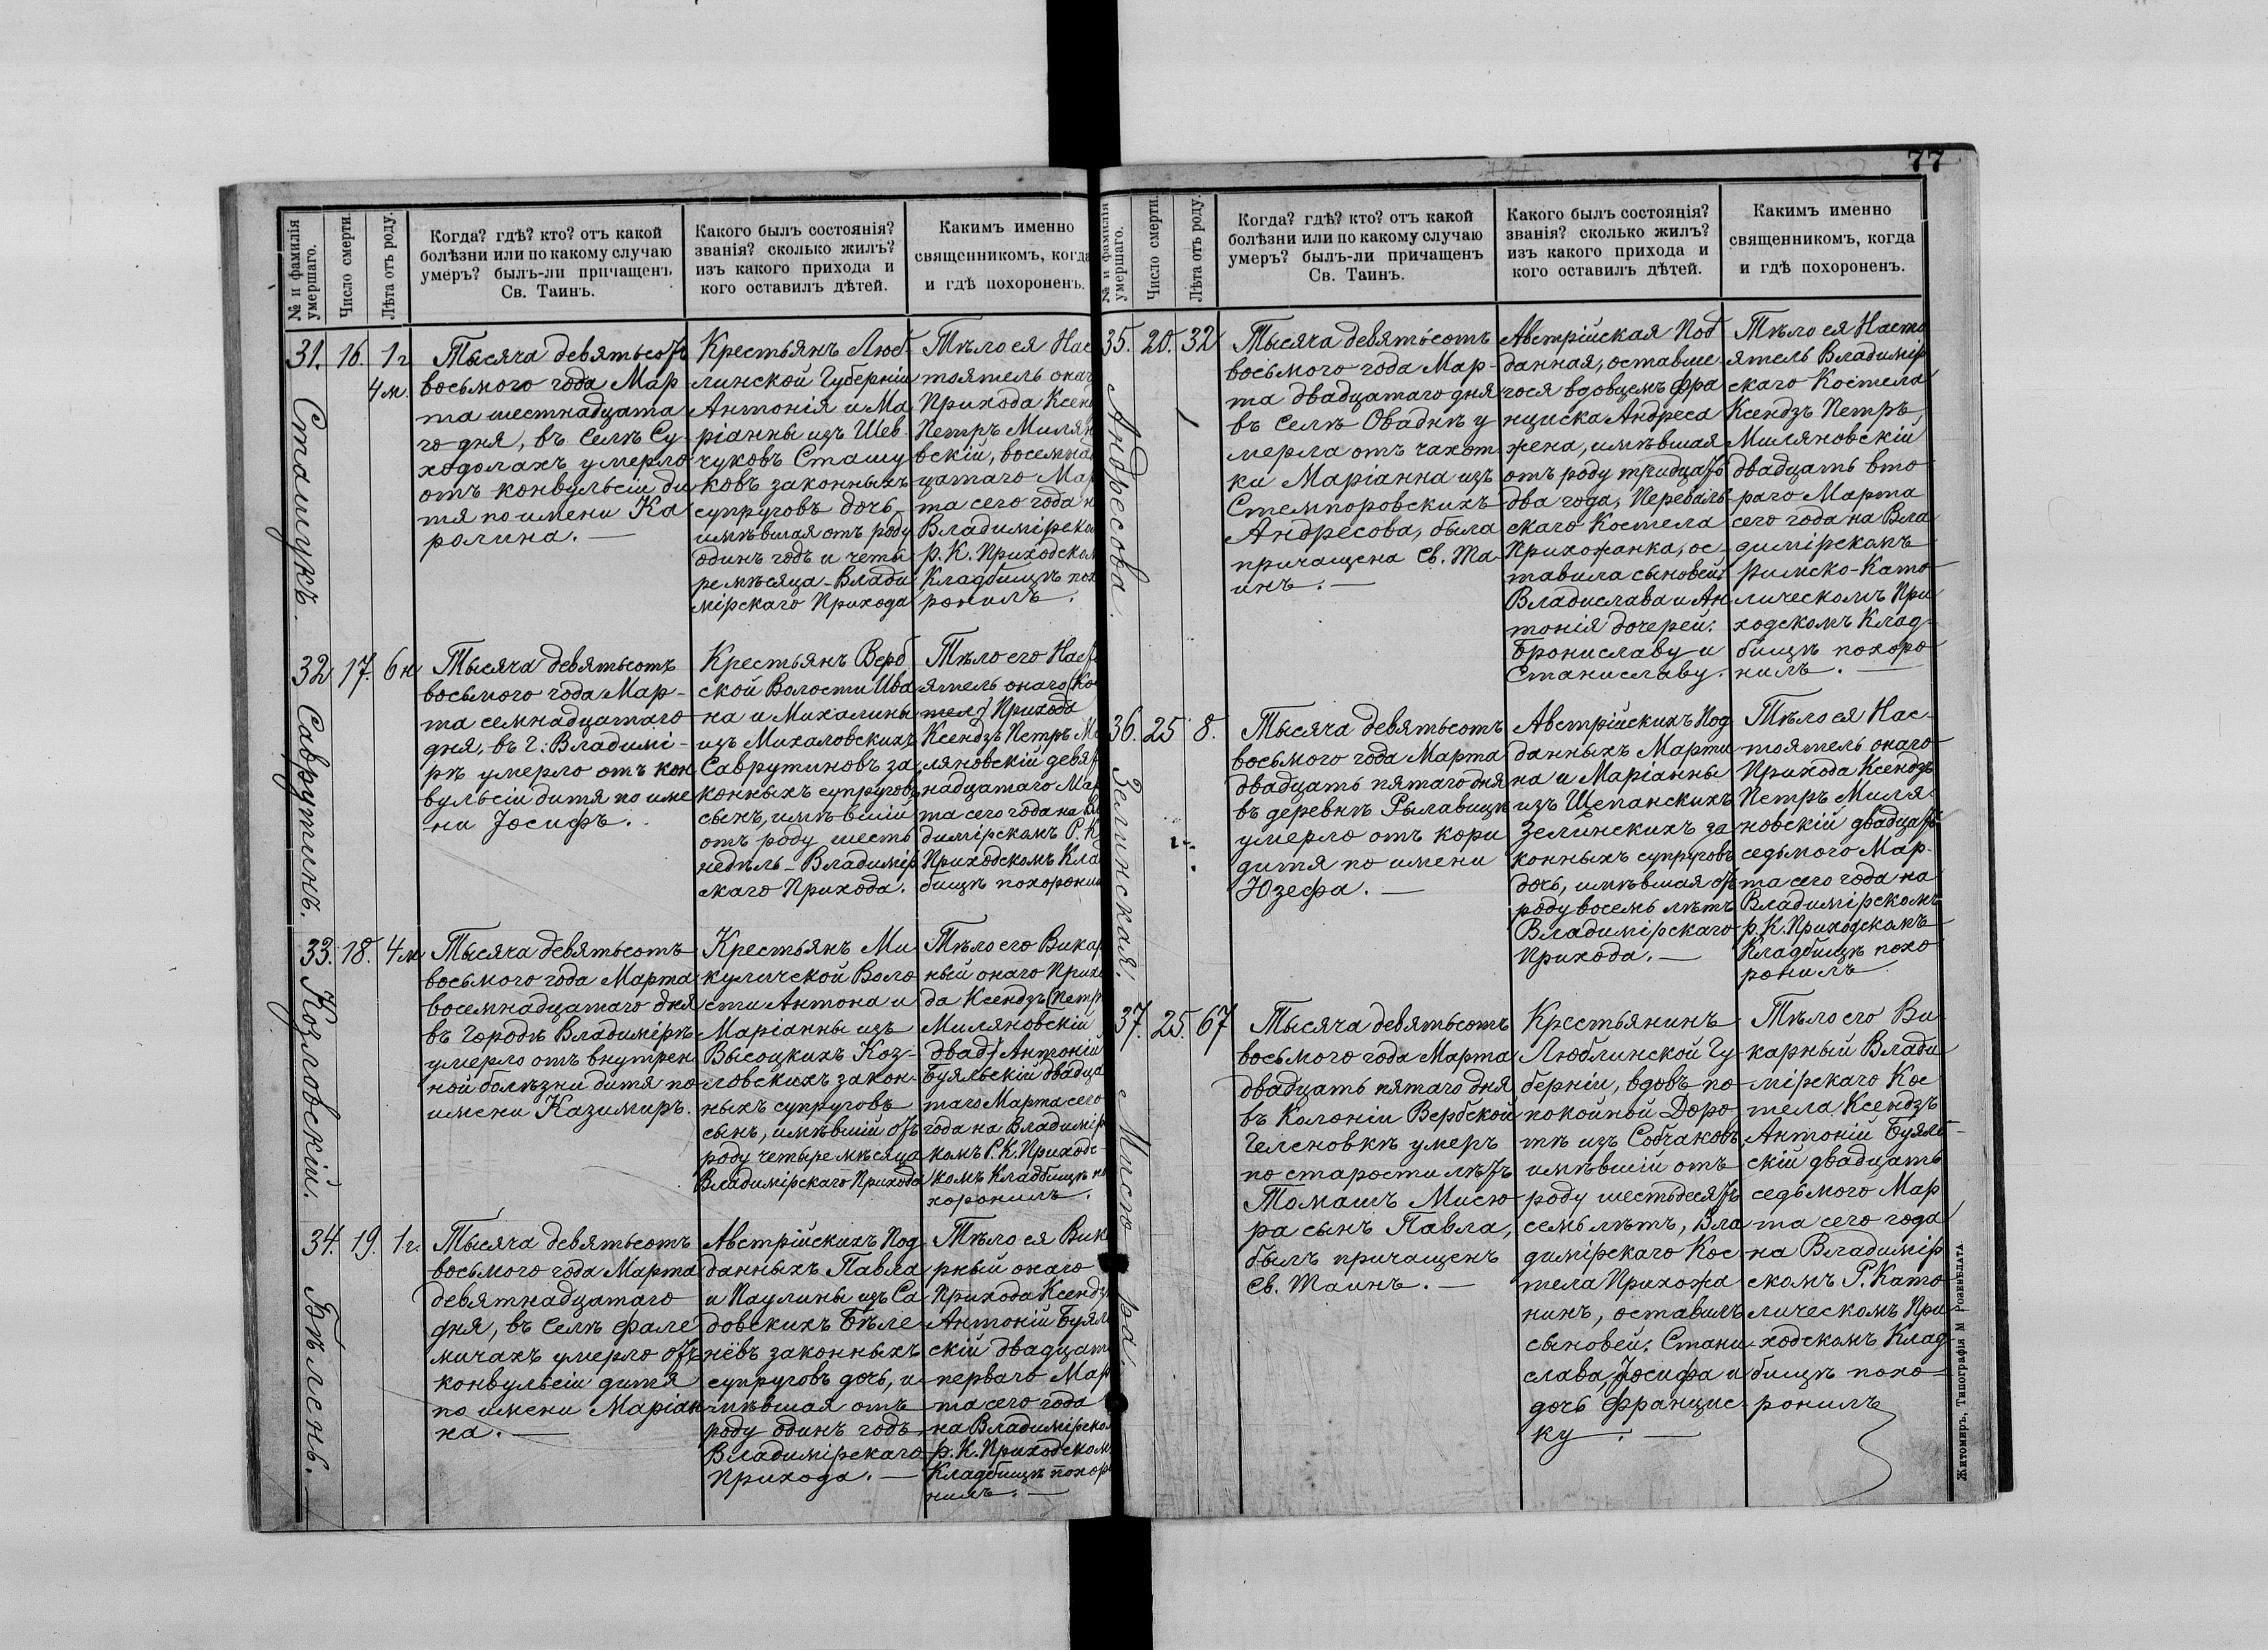 77
№ и фамилія
умершаго.
Число смерти.
Лѣта отъ роду.
Когда? гдѣ? кто? отъ какой
болѣзни или по какому случаю
умеръ? былъ-ли причащенъ
Св. Таинъ.
Какого былъ состоянія?
званія? сколько жилъ?
изъ какого прихода и
кого оставилъ дѣтей.
Какимъ именно
священникомъ, когда
и гдѣ похороненъ.
31.
Сташукъ.
16.
1 г
4 м.
Тысяча девятьсотъ
восьмого года Мар
та шестнадцата
го дня, въ селѣ Су
ходолахъ умерло
отъ конвульсіи ди
тя по имени Ка
ролина. —
Крестьянъ Люб-
линской Губерніи
Антонія и Ма
ріанны изъ Шев
чуковъ Сташу
ковъ законныхъ
супруговъ дочь,
имѣвшая отъ роду
одинъ годъ и четы
ре мѣсяца - Влади
мірскаго Прихода
Тѣло ея Нас
тоятель онаго
Прихода Ксен
Петръ Милян
вскій, восемнад
цатаго Мар
та сего года н
Владимірско
р. К. Приходском
Кладбищѣ пох
ронилъ.
32
Саврутинъ.
17.
6 н
Тысяча девятьсотъ
восьмого года Мар-
та семнадцатаго
дня, въ г. Владимі-
рѣ умерло отъ кон
вульсіи дитя по име
ни Іосифъ.
Крестьянъ Верб
ской Волости Ива
на и Михалины
изъ Михаловскихъ
Саврутиновъ за
конныхъ супруговъ
сынъ, имѣвшій
отъ роду шесть
недѣль - Владимір
скаго Прихода.
Тѣло его Насто
ятель онаго (Кос
тел) Прихода
Ксендзъ Петръ Ми
ляновскій девят
надцатаго Мар
та сего года на Вл
димірскомъ Р. К.
Приходскомъ Клад
бищѣ похоронил
33.
Козловскій.
18.
4 м
Тысяча девятьсотъ
восьмого года Марта
восемнадцатаго дня
въ городѣ Владимірѣ
умерло отъ внутрен
ной болѣзни дитя по
имени Казимиръ.
Крестьянъ Ми
куличской Воло
сти Антона и
Маріанны изъ
Высоцкихъ Коз-
ловскихъ закон-
ныхъ супруговъ
сынъ, имѣвшій отъ
роду четыре мѣсяца
Владимірскаго Прихода
Тѣло его Викар
ный онаго Прихо
да Ксендзъ (Петр
Миляновскій
двад) Антоній
Буяльскій двадца
таго Марта сего
года на Владимір
комъ Р. К. Приходс
комъ Кладбищѣ по
хоронилъ.
34.
Бѣлень.
19.
1 г.
Тысяча девятьсотъ
восьмого года Марта
девятнадцатаго
дня, въ селѣ Фале
мичахъ умерло отъ
конвульсіи дитя
по имени Маріан
на. —
Австрійскихъ Под
данныхъ Павла
и Паулины изъ Са
довскихъ Бѣле
нёвъ законныхъ
супруговъ дочь, и-
мѣвшая отъ
роду одинъ годъ
Владимірскаго
Прихода. —
Тѣло ея Вика
рный онаго
Прихода Ксендз
Антоній Буял
скій двадцат
перваго Мар
та сего года
на Владимірско
р. К. Приходском
Кладбищѣ похоро
нилъ. —
№ и фамилія
умершаго.
Число смерти.
Лѣта отъ роду.
Когда? гдѣ? кто? отъ какой
болѣзни или по какому случаю
умеръ? былъ-ли причащенъ
Св. Таинъ.
Какого былъ состоянія?
званія? сколько жилъ?
изъ какого прихода и
кого оставилъ дѣтей.
Какимъ именно
священникомъ, когда
и гдѣ похороненъ.
35.
Андресова.
20.
32
Тысяча девятьсотъ
восьмого года Мар-
та двадцатаго дня
въ селѣ Оваднѣ у
мерла отъ чахот
ки Маріанна изъ
Стемпоровскихъ
Андресова, была
причащена Св. Та-
инъ. —
Австрійская Под
данная, оставше
гося вдовцемъ Фра
нциска Андреса
жена, имѣвшая
отъ роду тридцать
два года, Переваль
скаго Костела
Прихожанка, ос-
тавила сыновей:
Владислава и Ан
тонія дочерей:
Брониславу и
Станиславу.
Тѣло ея Насто
ятель Владимір
скаго Костела
Ксендзъ Петръ
Миляновскій
двадцать вто
раго Марта
сего года на Вла
димірскомъ
Римско-Като
лическомъ При
ходскомъ Клад-
бищѣ похоро
нилъ. —
36.
Зелинская.
25
8.
Тысяча девятьсотъ
восьмого года Марта
двадцать пятаго дня
въ деревнѣ Рылавицѣ
умерло отъ кори
дитя по имени
Юзефа. —
Австрійскихъ Под
данныхъ Марти
на и Маріанны
изъ Щепанскихъ
Зелинскихъ за
конныхъ супруговъ
дочь, имѣвшая отъ
роду восемь лѣтъ
Владимірскаго
Прихода. —
Тѣло ея Нас-
тоятель онаго
Прихода Ксендзъ
Петръ Миля-
новскій двадцать
седьмого Мар-
та сего года на
Владимірскомъ
р. К. Приходскомъ
Кладбищѣ похо
ронилъ
37.
Мисюра.
25.
67
Тысяча девятьсотъ
восьмого года Марта
двадцать пятаго дня
въ Колоніи Вербской
Геленовкѣ умеръ
по старости лѣтъ
Томашъ Мисю
ра сынъ Павла,
былъ причащенъ
Св. Таинъ. —
Крестьянинъ
Люблинской Гу
берніи, вдовъ по-
покойной Доро
тѣ изъ Собчаковъ
имѣвшій отъ
роду шестьдесятъ
семь лѣтъ, Вла
димірскаго Кос
тела Прихожа
нинъ, оставилъ
сыновей: Стани
слава, Іосифа и
дочь Францис-
ку. —
Тѣло его Ви
карный Влади
мірскаго Кос
тела Ксендзъ
Антоній Буяль-
скій двадцать
седьмого Мар
та сего года
на Владимір
скомъ Р. Като
лическомъ При
ходскомъ Клад-
бищѣ похо-
ронилъ
Житомиръ, Типографія М Розенблата.